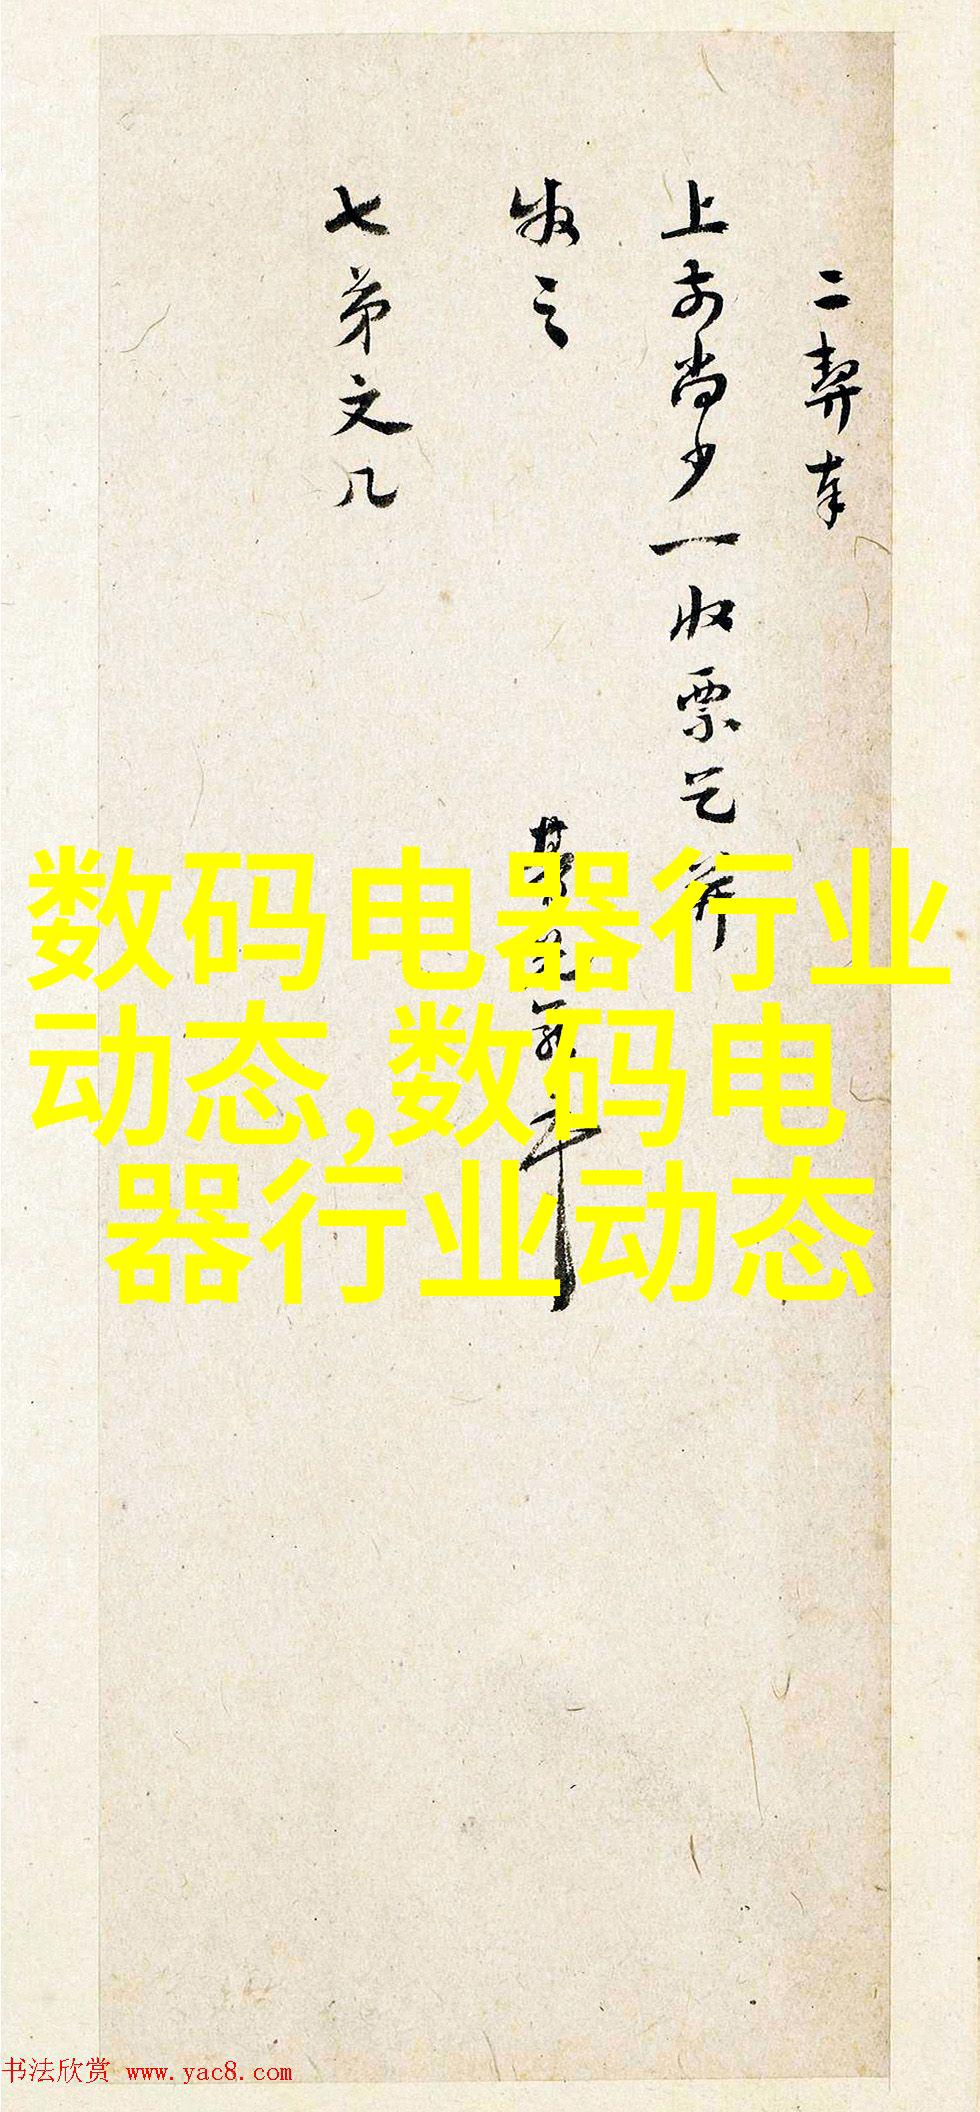 二契奉
上前尚少一收票乞并
收之
七弟文几
数码电器行业
动态,数码电
器行业动态
书法欣赏 www.yac8.com